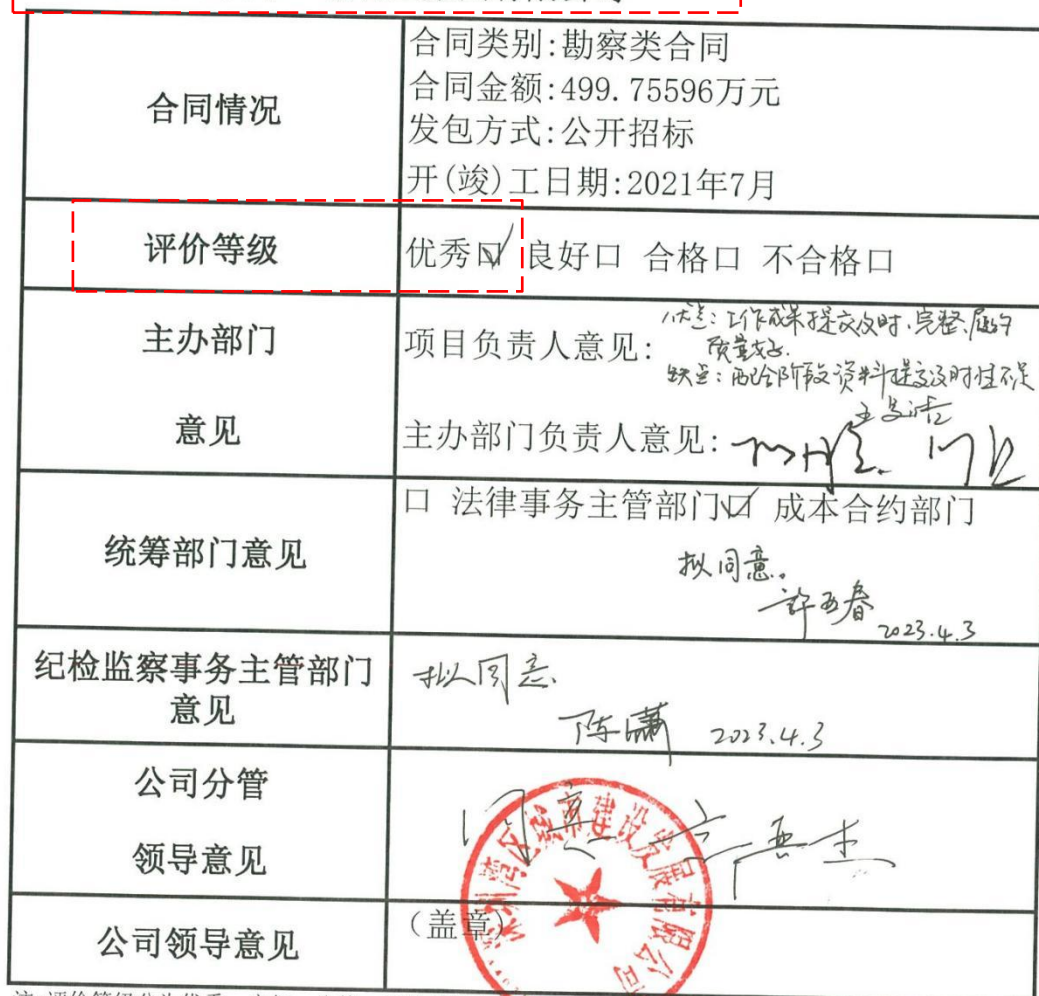 合同情况
合同类别:勘察类合同
合同金额:499.75596万元
发包方式:公开招标
开(竣)工日期:2021年7月
评价等级
优秀口✓ 良好口 合格口 不合格口
主办部门
意见
项目负责人意见:
优点:工作成果提交及时、完整、履约
质量好.
缺点:配合阶段资料提交及时性不足
主办部门负责人意见:
统筹部门意见
口 法律事务主管部门口✓ 成本合约部门
拟同意。
2023.4.3
纪检监察事务主管部门
意见
拟同意.
陈潇 2023.4.3
公司分管
领导意见
同意
公司领导意见
(盖章)
建设发展有限公司